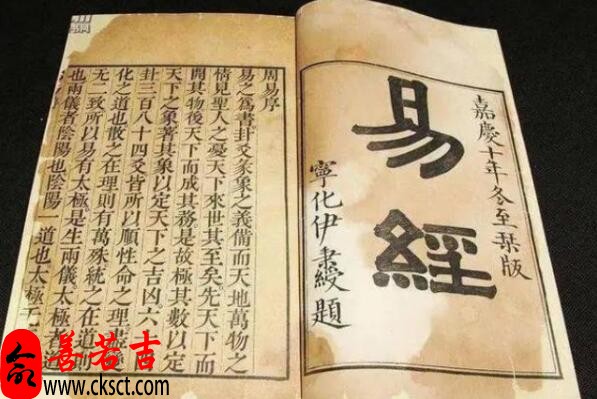 嘉慶十年冬至栞版
易經
寧化伊秉綬題
周易序
易之爲書卦爻彖象之義備而天地萬物之
情見聖人之憂天下來世其至矣先天下而
開其物後天下而成其務是故極其數以定
天下之象著其象以定天下之吉凶六
卦三百八十四爻皆所以順性命之理盡
化之道也散之在理則有萬殊統之在道則
无二致所以易有太極是生兩儀太極者道
也兩儀者陰陽也陰陽一道也太極
善若吉
www.cksct.com